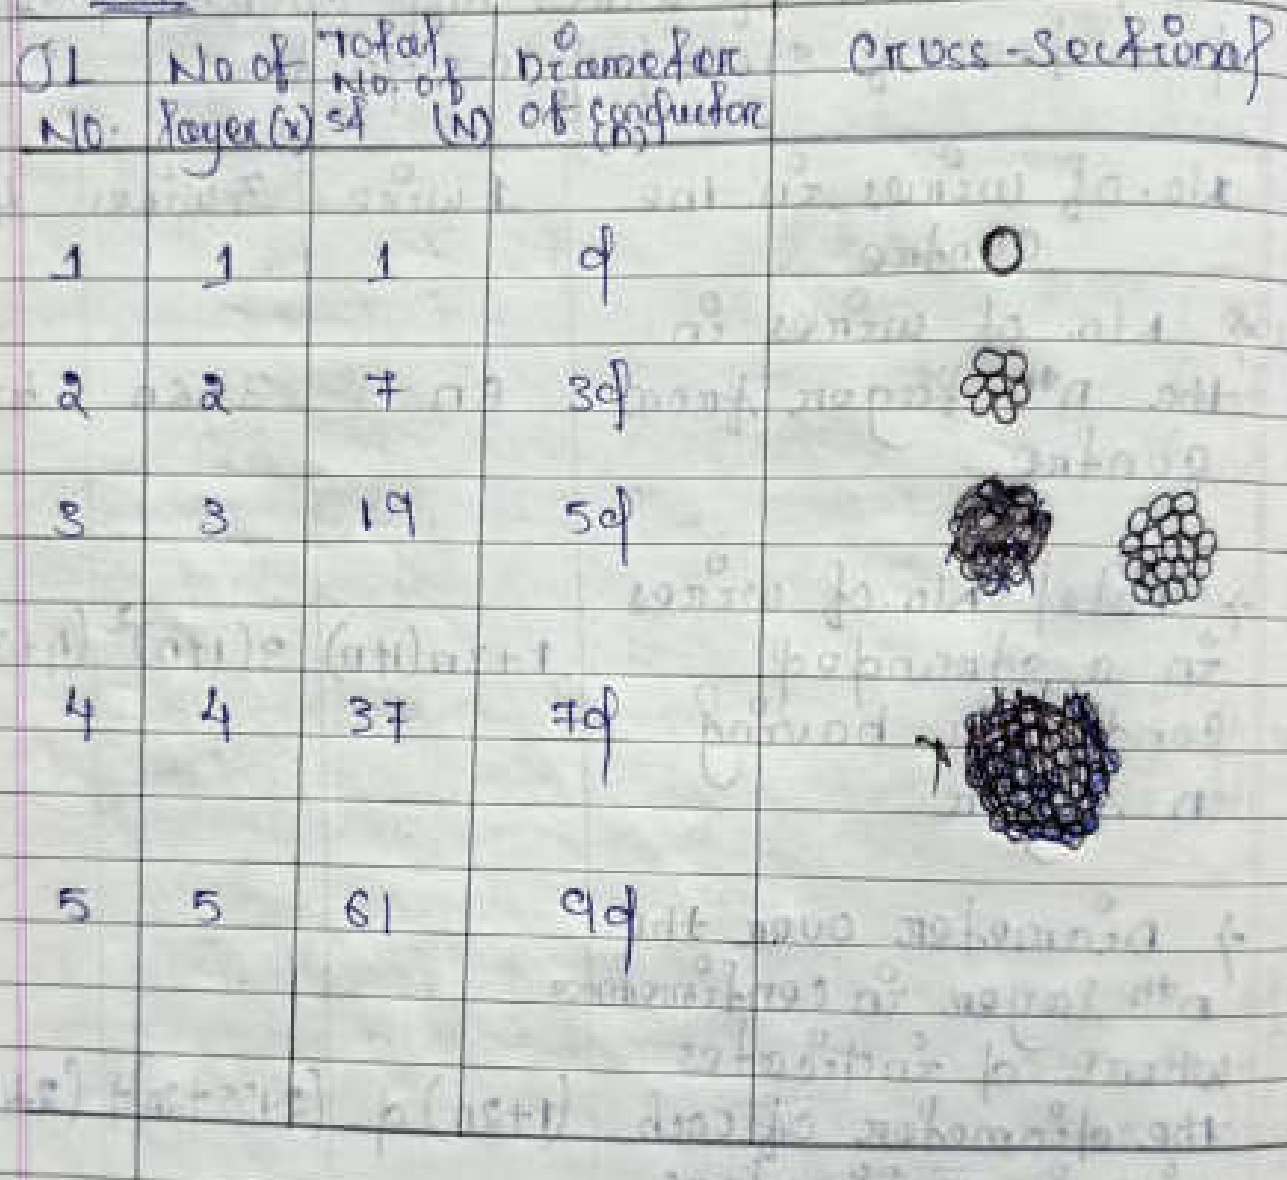 SL No. No of layer (x) Total No. of st (N) Diameter of conductor (D) Cross-sectional
1 1 1 d
2 2 7 3d
3 3 19 5d
4 4 37 7d
5 5 61 9d